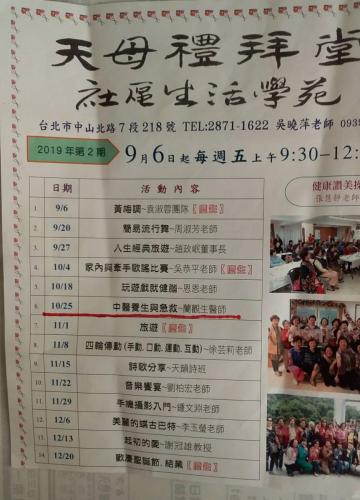 天母禮拜堂
社區生活學苑
台北市中山北路7段218號 TEL:2871-1622 吳曉萍老師 093
2019年第2期 9月6日起每週五上午9:30-12:
日期 活動內容
1. 9/6 黃梅調~袁淑蓉團隊
2. 9/20 簡易流行舞~周淑芳老師
3. 9/27 人生經典旅遊~趙政岷董事長
4. 10/4 家內與牽手歌謠比賽~吳恭平老師
5. 10/18 玩遊戲就健腦~恩恩老師
6. 10/25 中醫養生與急救~蘭觀生醫師
7. 11/1 旅遊
8. 11/8 四輪傳動(手動.口動.運動.互動)~徐芸莉老師
9. 11/15 詩歌分享~天韻詩班
10. 11/22 音樂饗宴~劉柏宏老師
11. 11/29 手機攝影入門~鍾文淵老師
12. 12/6 美麗的蝶古巴特~李玉瑩老師
13. 12/13 起初的愛~謝冠雄教授
14. 12/20 歡慶聖誕節.結業
健康讚美操
張慧靜老師